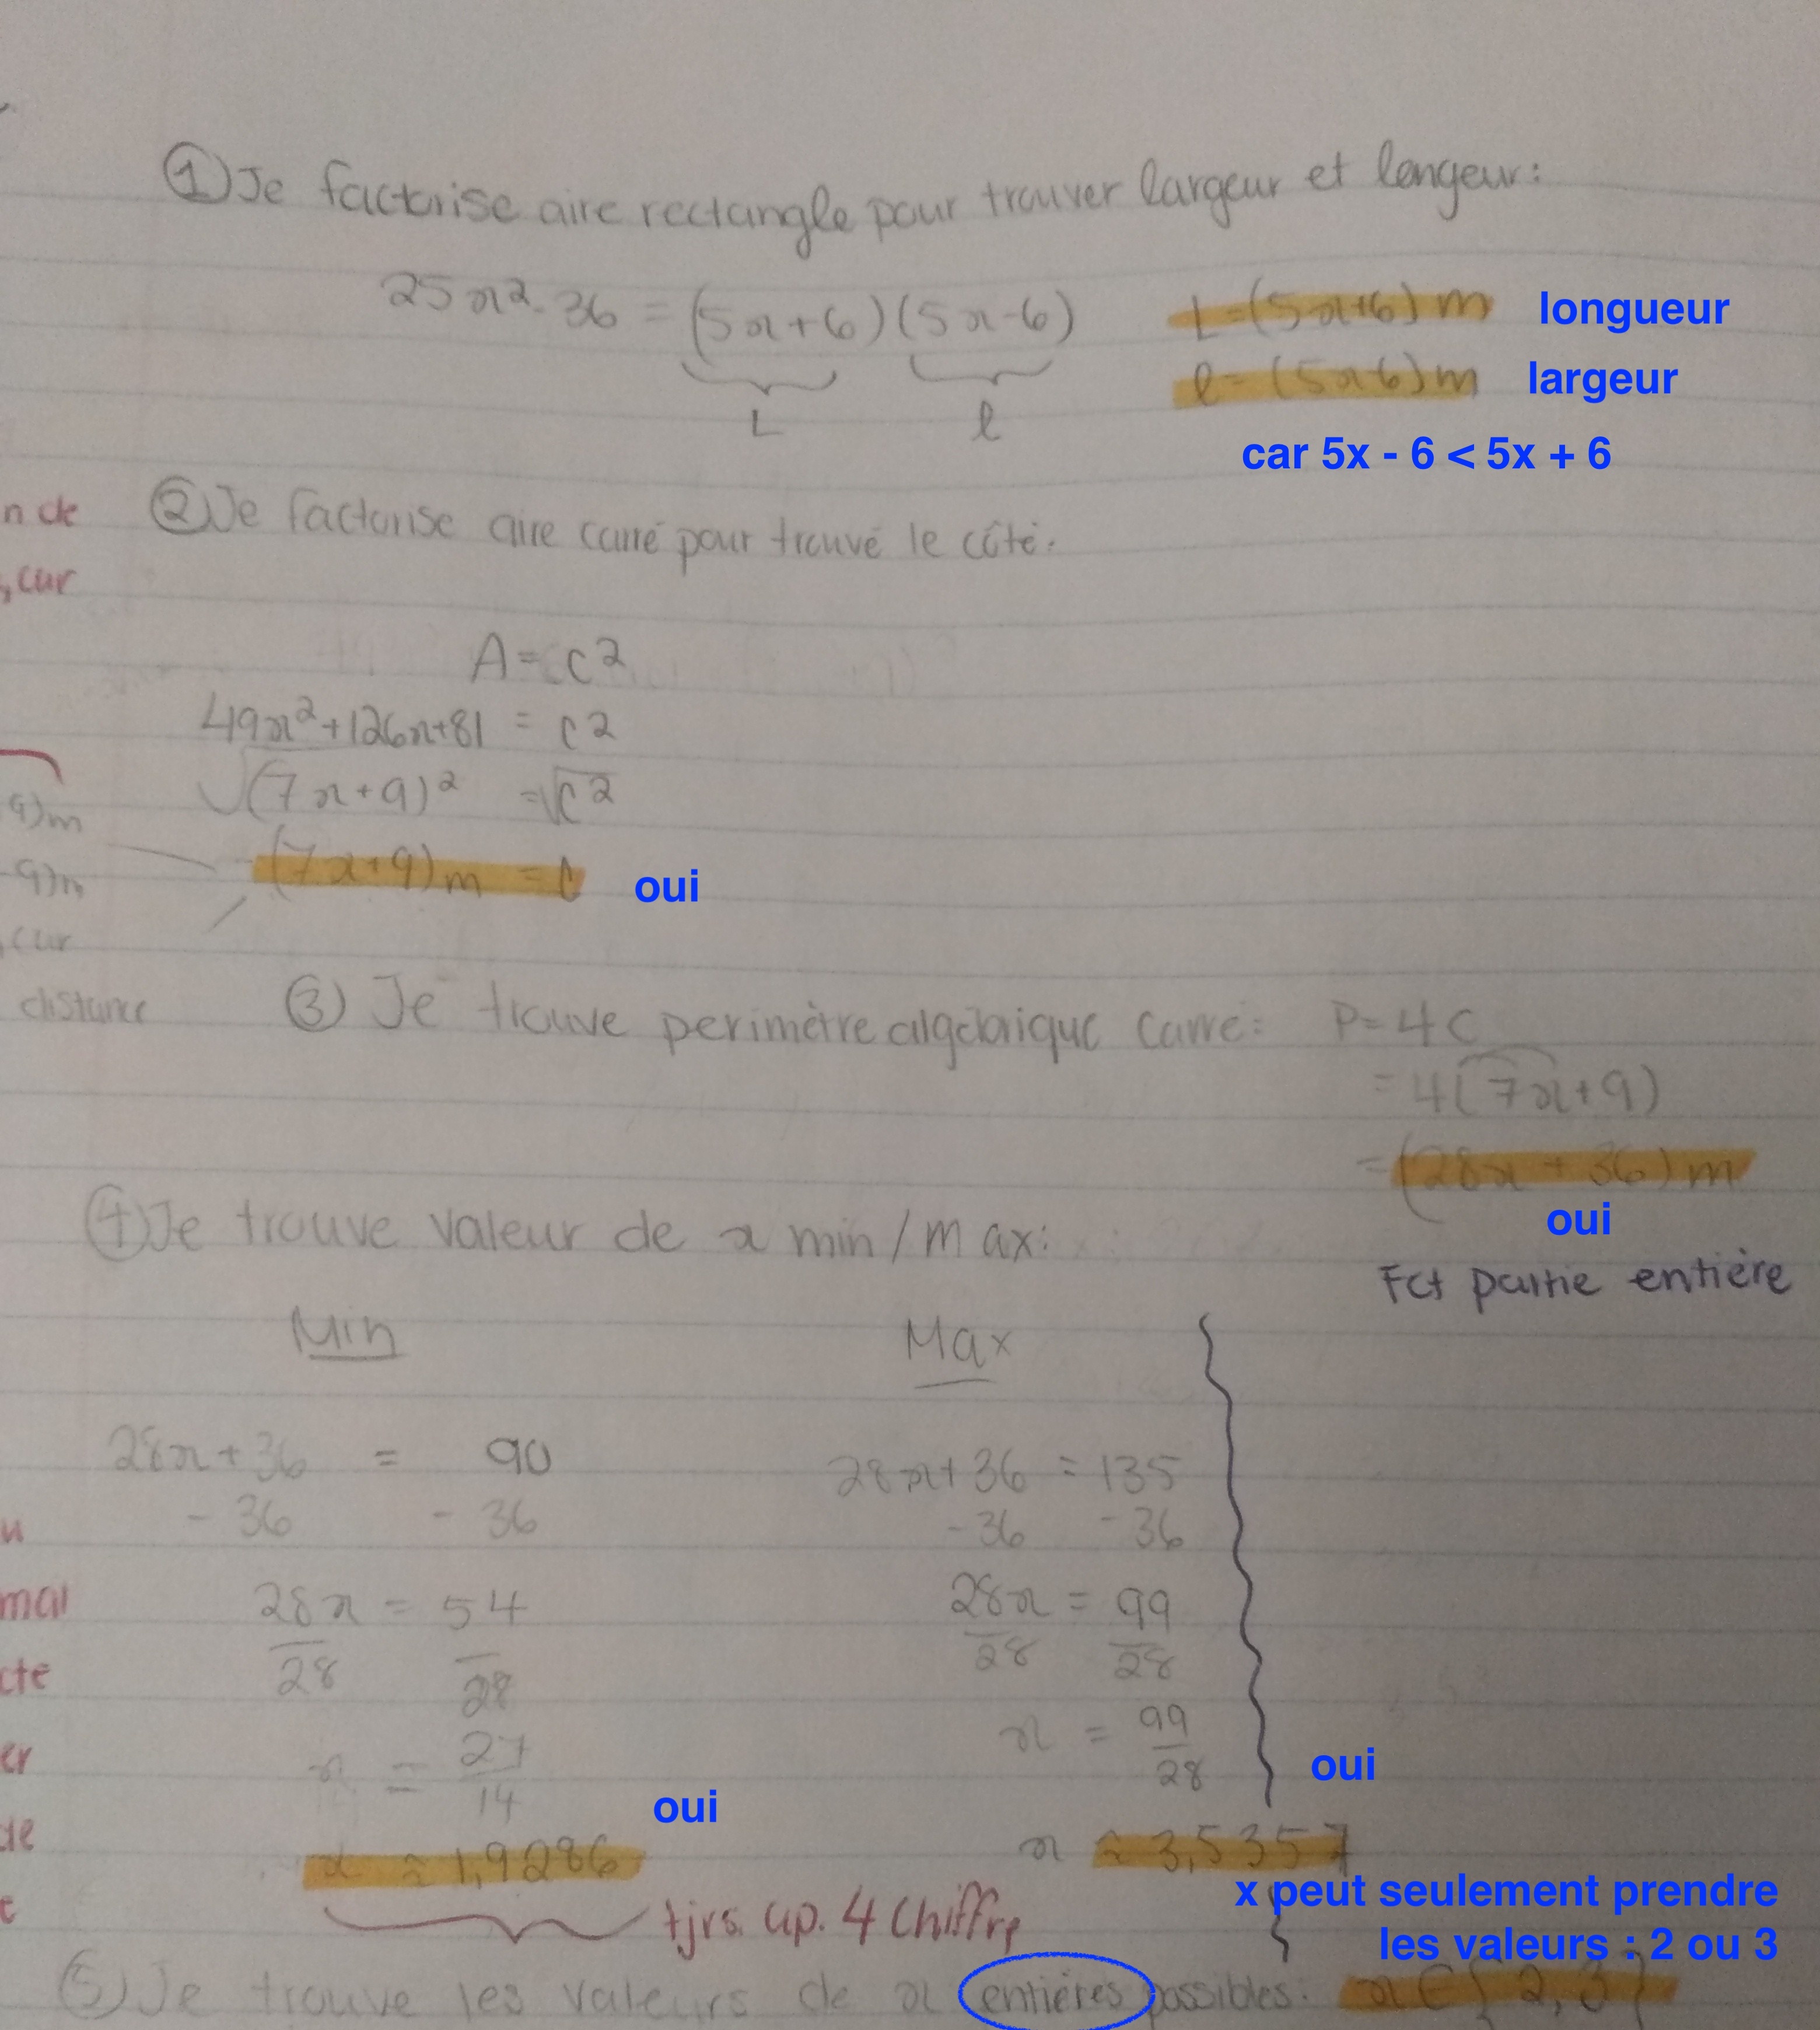 ① Je factorise aire rectangle pour trouver largeur et longeur:
25x² - 36 = (5x+6)(5x-6) L=(5x+6) m longueur
L l l=(5x-6)m largeur
car 5x - 6 < 5x + 6
n de ② Je factorise aire carré pour trouvé le côté.
, car
A = c²
49x²+126x+81 = c²
√(7x+9)² = √c²
9)m
(7x+9)m = c oui
-9)m
, car
distance ③ Je trouve perimètre algébrique carré: P=4c
= 4(7x+9)
= (28x + 36) m
oui
④ Je trouve valeur de x min/max:
Fct partie entière
Min Max
28x+36 = 90 28x+36 = 135
- 36 - 36 -36 -36
u
28x = 54 28x = 99
mal
28 28 28 28
cte
x = 27/14 x = 99/28 oui
er
oui
de
x ≈ 1,9286 x ≈ 3,5357
x peut seulement prendre
tjrs. ap. 4 chiffre
les valeurs : 2 ou 3
⑤ Je trouve les valeurs de x entières possibles: x ∈ { 2, 3 }